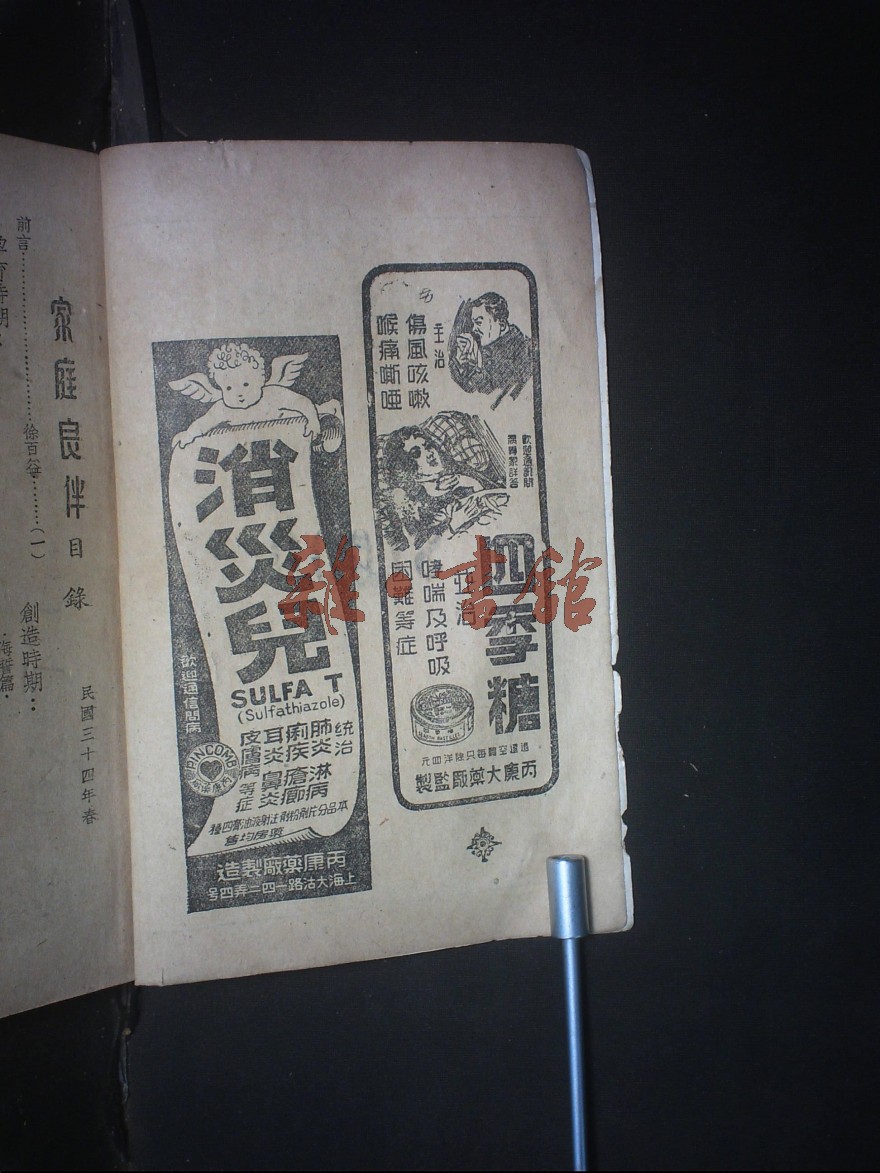 家庭良伴 目錄
民國三十四年春
前言……………………徐百益………(一)
創造時期:
主治
傷風咳嗽
喉痛嘶啞
歡迎通函問
四季糖
並治
哮喘及呼吸
困難等症
丙康大藥厰監製
消災兒
SULFA T
(Sulfathiazole)
統治
肺炎 淋病
痢疾 瘡癤
耳炎 鼻炎
皮膚病等症
歡迎通信問病
PINCOMB
本品分片劑粉劑注射液油膏四種
藥房均售
丙康藥厰製造
上海大沽路一四二弄四號
雜·書館